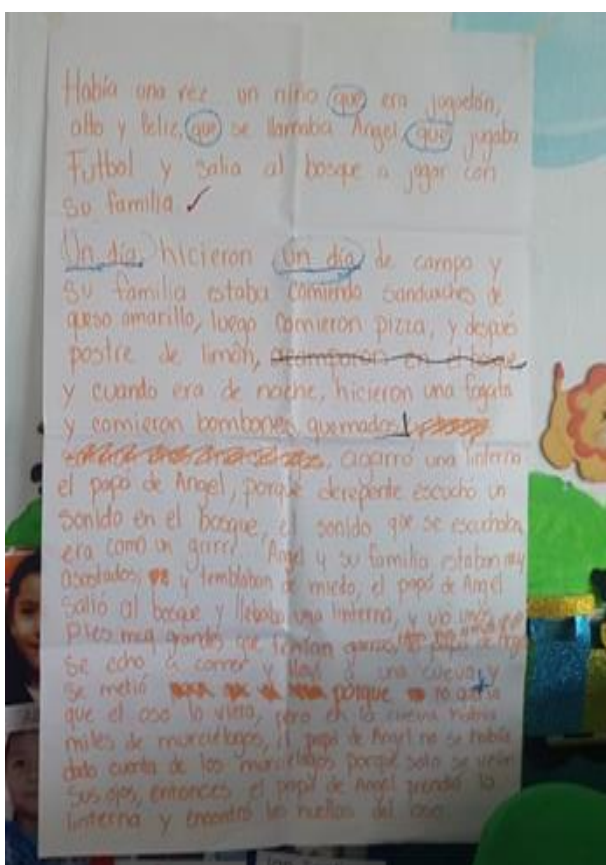 Había una vez un niño que era juguetón,
alto y feliz, que se llamaba Angel, que jugaba
Futbol y salia al bosque a jugar con
su familia
Un día hicieron un día de campo y
su familia estaba comiendo sandwiches de
queso amarillo, luego comieron pizza, y después
postre de limón, acamparon en el
y cuando era de noche, hicieron una fogata
y comieron bombones quemados
agarró una linterna
el papá de Angel, porque derepente escuchó un
sonido en el bosque, el sonido que se escuchaba
era como un grrrr Angel y su familia estaban muy
asustados, y temblaban de miedo, el papá de Angel
salió al bosque y llebaba una linterna, y vió unos
pies muy grandes que tenían garras, el papá de Angel
se echo a correr y a una cueva y
se metió porque no
que el oso lo viera, pero en la cueva había
miles de murciélagos, el papá de Angel no se había
dado cuenta de los murciélagos porque solo se veían
sus ojos, entonces el papá de Angel prendió la
linterna y encontró las huellas del oso